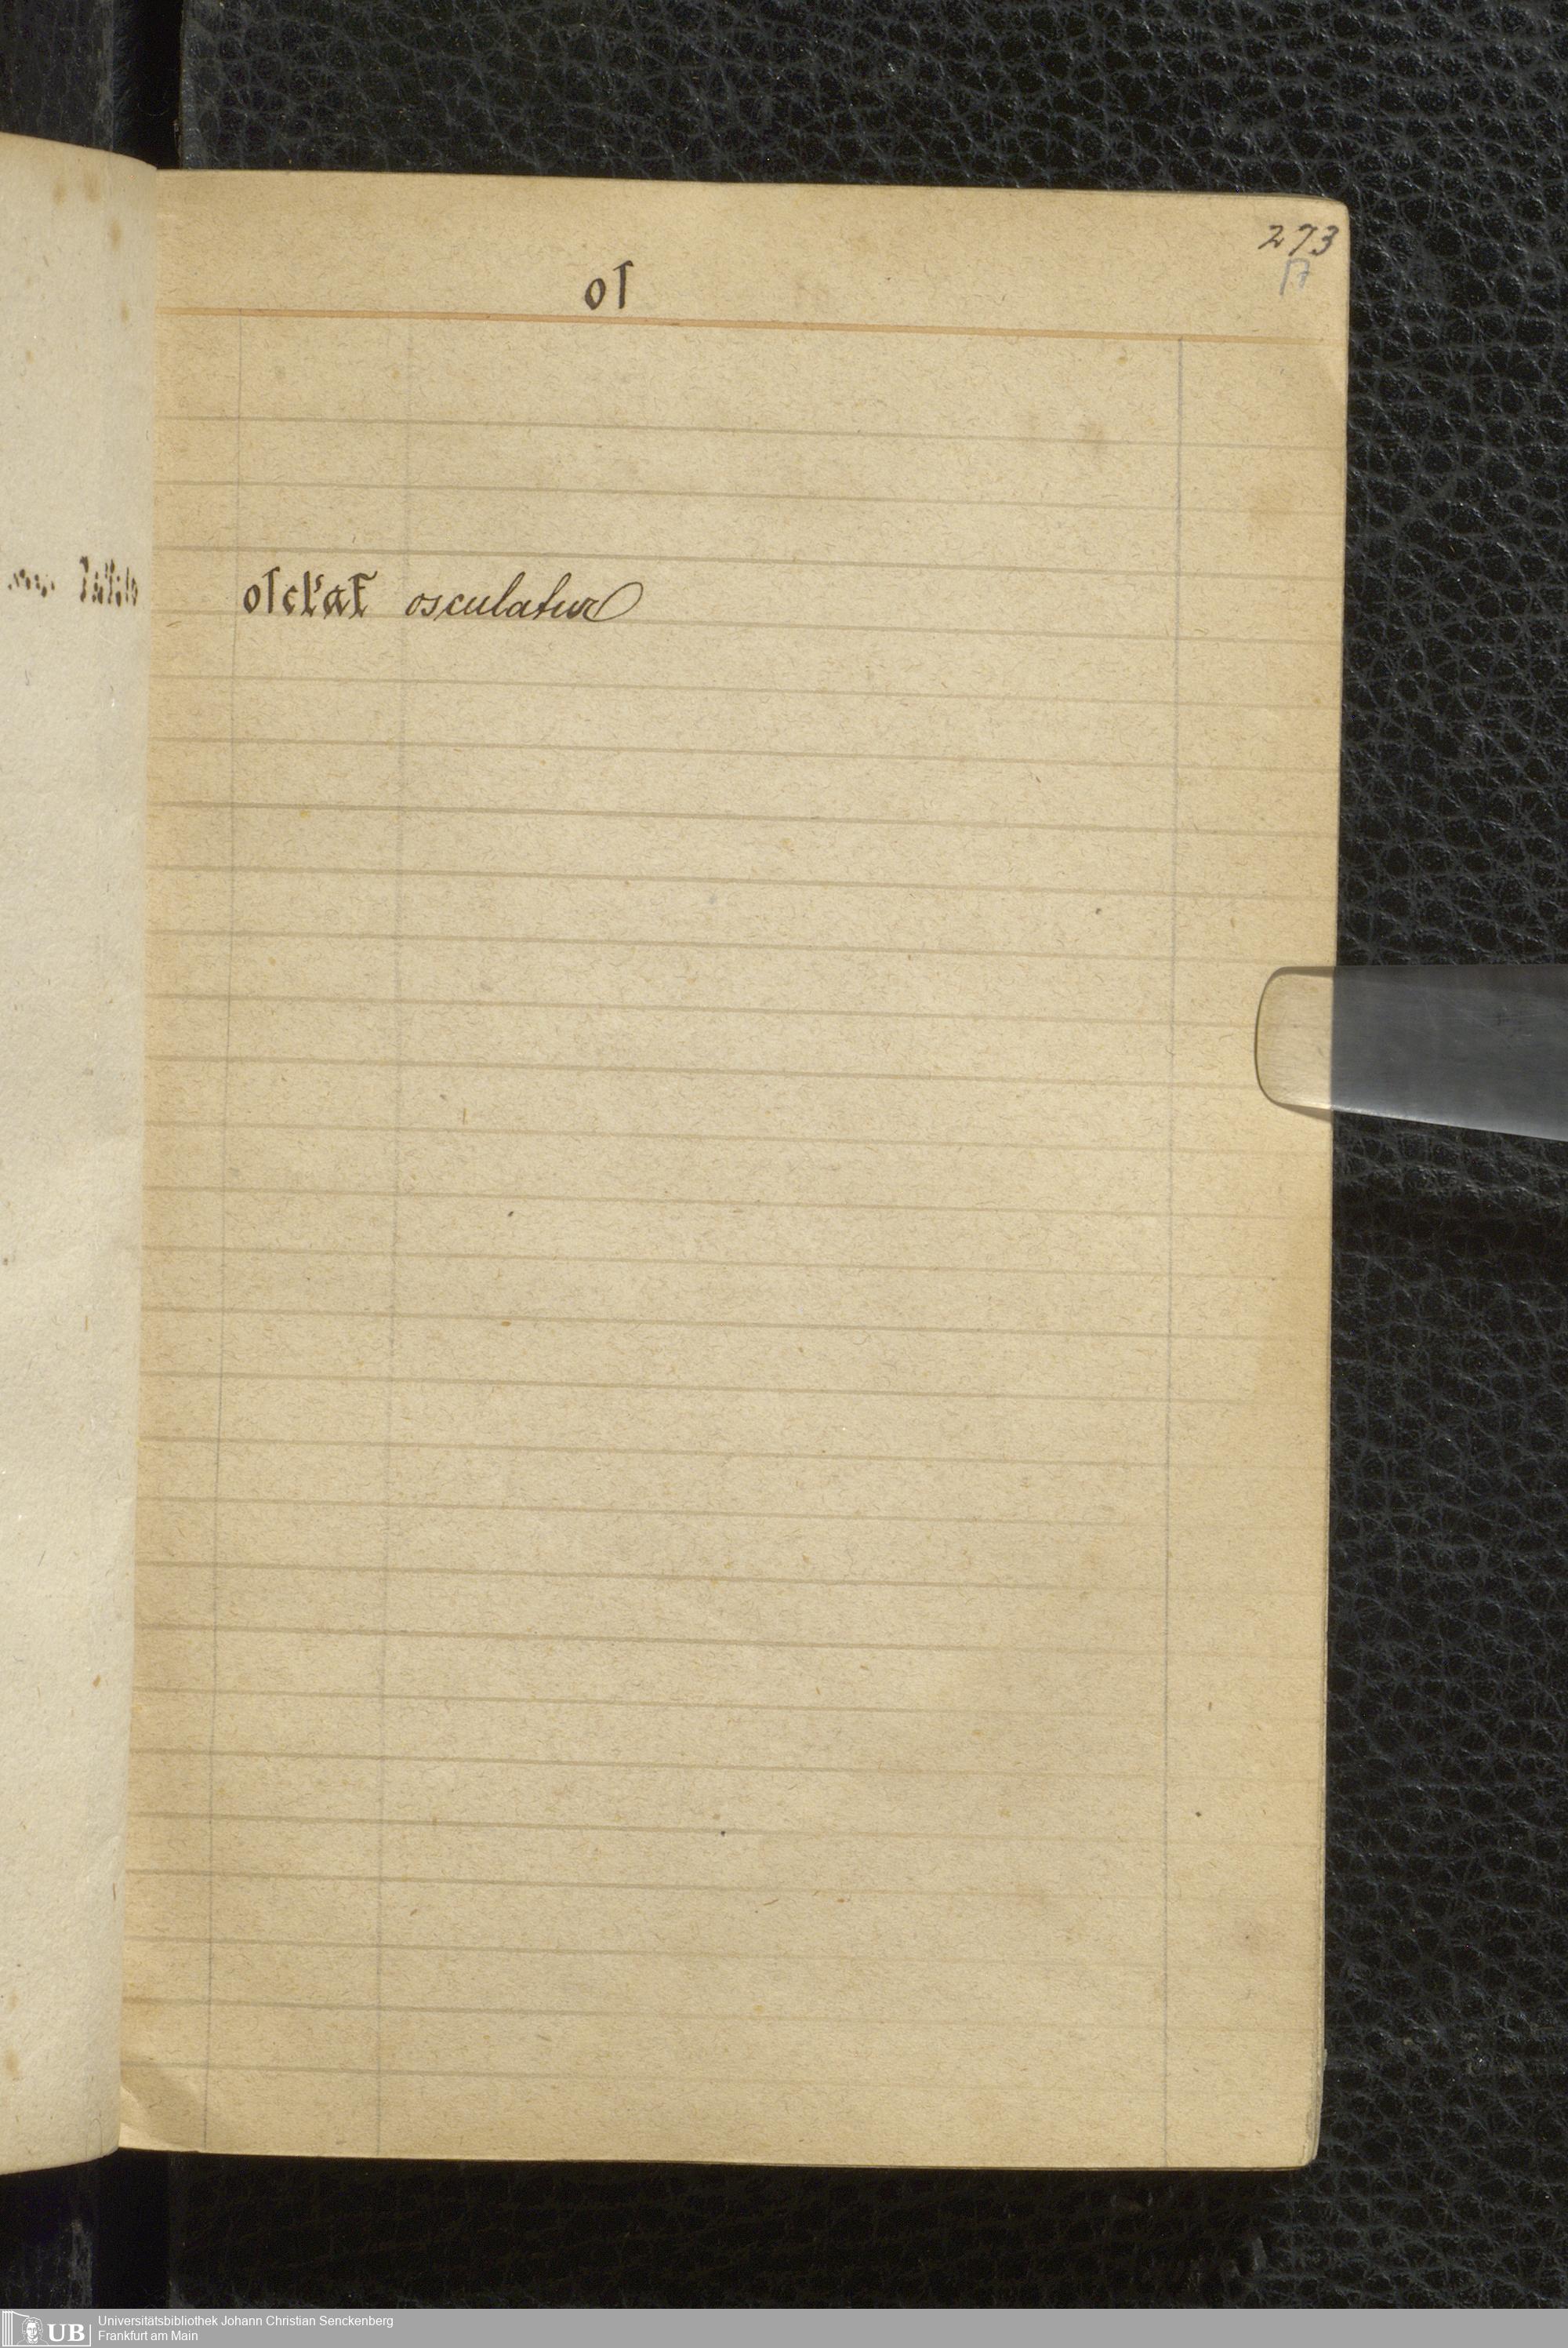 273
oſ
oſcl'at̄ osculatur
Universitätsbibliothek Johann Christian Senckenberg
Frankfurt am Main
UB